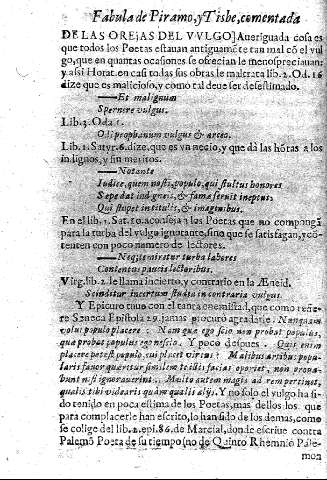 Fabula de Piramo, y Tisbe, comentada
DE LAS OREJAS DEL VVLGO] Aueriguada cosa es
que todos los Poetas estauan antiguamẽte tan mal cõ el vul
go, que en quantas ocasiones se ofrecian le menospreciauan:
y assi Horat. en casi todas sus obras le maltrata lib. 2. Od. 16
dize que es malicioso, y como tal deue ser desestimado.
—Et malignum
Spernere vulgus.
Lib. 3. Oda 1.
Odi prophanum vulgus & arceo.
Lib. 1. Satyr. 6. dize, que es vn necio, y que dà las hõras a los
indignos, y sin meritos.
—Notante
Iudice, quem nosti, populo, qui stultus honores
Sepe dat indgneis, & famæ seruit ineptus:
Qui stupet in titulis, & imaginibus.
En el lib. 1. Sat. 10. aconseja a los Poetas que no compongã
para la turba del vulgo ignorante, sino que se satisfagan, y cõ
tenten con poco numero de lectores.
—Neq; miretur turba labores
Contentus paucis lectoribus.
Virg. lib. 2. le llama incierto, y contrario en la Æneid.
Scinditur incertum studia in contraria vulgus.
Y Epicuro tuuo con el tanta enemistad, que como refie-
re Seneca Epistola 29. jamas procurò agradarle: Nunquam
volui populo placere: Nam quæ ego scio non probat populus,
quæ probat populus ego nescio. Y poco despues. Quis enim
placere potest populo, cui placet virtus? Malibus artibus popu-
laris fauor quæritur similem te illis facias oportet, non proba-
bunt nisi agnouerint. Multo autem magis ad rem pertinet,
qualis tibi videaris quàm qualis alijs. Y no solo el vulgo ha si-
do tenido en poca estima de los Poetas, mas dellos los que
para complacerle han escrito, lo han sido de los demas, como
se colige del lib. 2. epi. 86. de Marcial, donde escriue contra
Palemõ Poeta de su tiempo (no de Quinto Rhemnio Pale-
mon